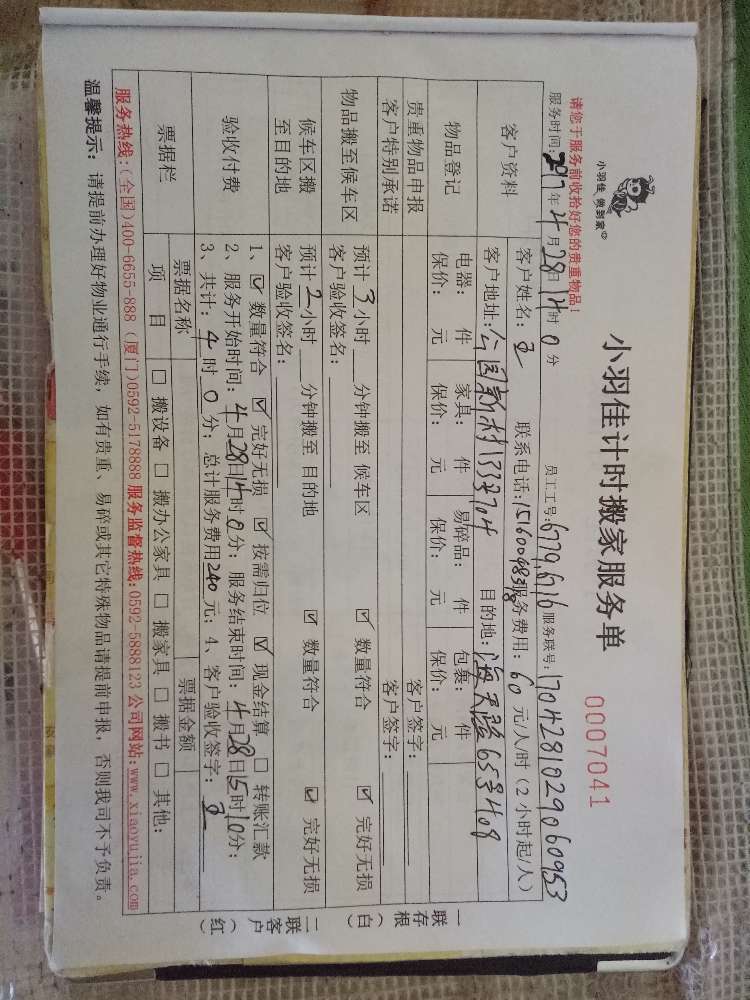 小羽佳 做到家
小羽佳计时搬家服务单
0007041
请您于服务前收拾好您的贵重物品！
员工工号：6779,6716 服务联号：170428102906 0953
服务时间：2017年4月28日14时0分
客户资料
客户姓名：王 联系电话：服务费用：60元/人/时（2小时起/人）
客户地址：公园新村133号704 目的地：海天路65号408
物品登记
电器： 件 家具： 件 易碎品： 件 包裹： 件
保价： 元 保价： 元 保价： 元 保价： 元
贵重物品申报 客户签字：
客户特别承诺 客户签字：
物品搬至候车区
预计3小时 分钟搬至 候车区 ☑ 数量符合 ☑ 完好无损
客户验收签名：
候车区搬至目的地
预计2小时 分钟搬至 目的地 ☑ 数量符合 ☑ 完好无损
客户验收签名：
验收付费
1、☑ 数量符合 ☑ 完好无损 ☑ 按需归位 ☑ 现金结算 □ 转账汇款
2、服务开始时间：4月28日14时0分；服务结束时间：4月28日15时10分；
3、共计：4时0分；总计服务费用240元；4、客户验收签字：王
票据栏
票据名称 票据金额
项 目 □ 搬设备 □ 搬办公家具 □ 搬家具 □ 搬书 □ 其他:
服务热线:(全国)400-6655-888 (厦门)0592-5178888 服务监督热线:0592-5888123 公司网站:www.xiaoyujia.com
温馨提示：请提前办理好物业通行手续，如有贵重、易碎或其它特殊物品请提前申报，否则我司不予负责。
一联存根（白）
二联客户（红）